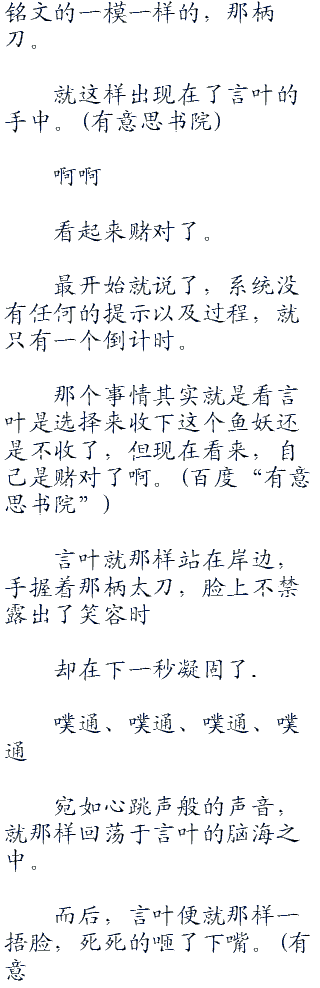 铭文的一模一样的，那柄
刀。
就这样出现在了言叶的
手中。（有意思书院）
啊啊
看起来赌对了。
最开始就说了，系统没
有任何的提示以及过程，就
只有一个倒计时。
那个事情其实就是看言
叶是选择来收下这个鱼妖还
是不收了，但现在看来，自
己是赌对了啊。（百度“有意
思书院”）
言叶就那样站在岸边，
手握着那柄太刀，脸上不禁
露出了笑容时
却在下一秒凝固了．
噗通、噗通、噗通、噗
通
宛如心跳声般的声音，
就那样回荡于言叶的脑海之
中。
而后，言叶便就那样一
捂脸，死死的咂了下嘴。（有
意